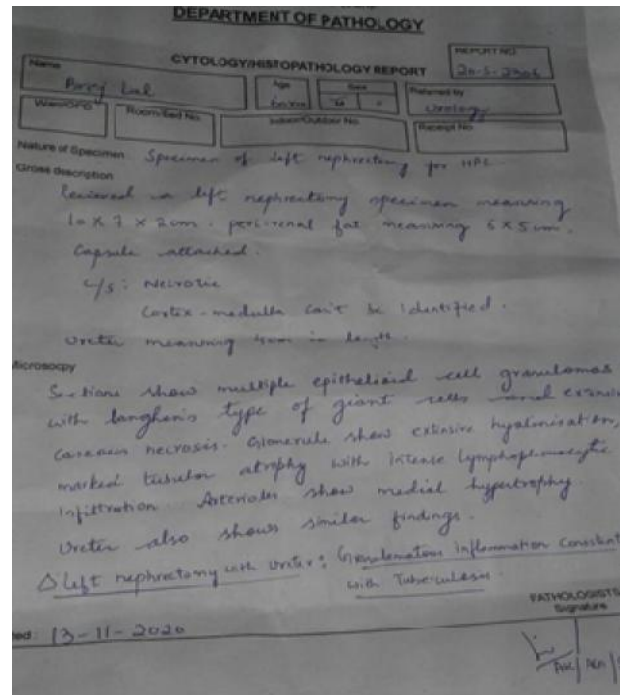 DEPARTMENT OF PATHOLOGY
CYTOLOGY/HISTOPATHOLOGY REPORT
REPORT NO
20-S-2306
Name
Lal
Age
Sex
Referred by
Urology
Ward/OPD
Room/Bed No.
Indoor/Outdoor No.
Receipt No
Nature of Specimen Specimen of left nephrectomy for HPE
Gross description
Received a left nephrectomy specimen measuring
10 x 7 x 2cm. perirenal fat measuring 6 x 5 cm.
Capsule attached.
C/S: Necrotic
Cortex-medulla can't be identified.
Ureter measuring 4cm in length.
Microsocpy
Sections show multiple epithelioid cell granulomas
with langhan's type of giant cells and
caseous necrosis. Glomeruli show extensive hyalinisation,
marked tubular atrophy with intense lymphoplasmacytic
infiltration Arterioles show medial hypertrophy.
Ureter also shows similar findings.
Δ Left nephrectomy with ureter: Granulomatous inflammation Consistent
with Tuberculosis
PATHOLOGISTS
Signature
ted: 13-11-2020